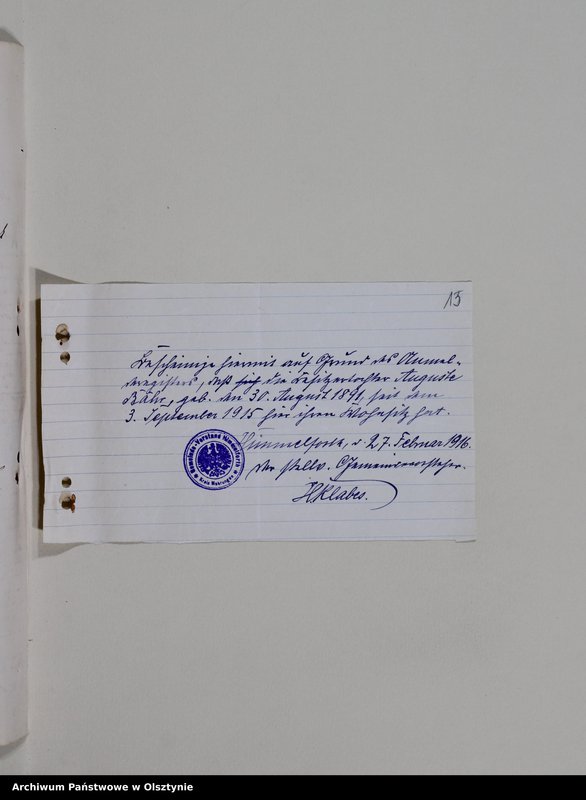 15
Bescheinige hiermit auf Grund des Anmel-
deregisters, daß sich die Besitzertochter Auguste
Bähr, geb. den 30. August 1891, seit dem
3. September 1915 hier ihren Wohnsitz hat.
Himmelforth, d. 27. Februar 1916.
Der stellv. Gemeindevorsteher.
HKlabes.
Gemeinde-Vorstand Himmelforth
Kreis Mohrungen
Archiwum Państwowe w Olsztynie